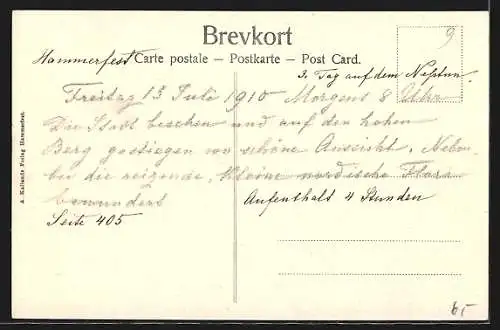 Brevkort
Carte postale – Postkarte – Post Card.
9
Hammerfest
3. Tag auf dem Neptun.
Freitag 15 Juli 1910 Morgens 8 Uhr
Die Stadt besehen und auf den hohen
Berg gestiegen wo schöne Aussicht. Neben-
bei die reizende, kleine nordische Flora
bewundert
Aufenthalt 4 Stunden
Seite 405
65